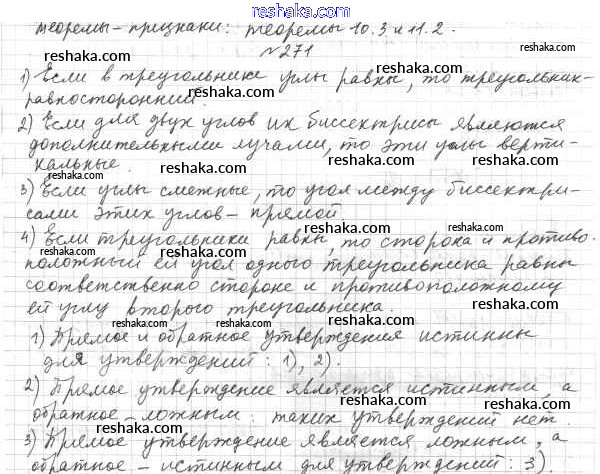 reshaka.com
теоремы-признаки: теоремы 10.3 и 11.2.
reshaka.com
№271
reshaka.com reshaka.com
1) Если в треугольнике углы равны, то треугольник-
равносторонний.
reshaka.com reshaka.com
2) Если для двух углов их биссектрисы являются
дополнительными лучами, то эти углы верти-
кальные.
reshaka.com reshaka.com
3) Если углы смежные, то угол между биссектри-
сами этих углов - прямой
reshaka.com reshaka.com
4) Если треугольники равны, то сторона и противо-
положный ей угол одного треугольника равны
соответственно стороне и противоположному
reshaka.com reshaka.com
ей углу второго треугольника.
reshaka.com reshaka.com
1) Прямое и обратное утверждения истинны
для утверждений: 1), 2).
reshaka.com reshaka.com
2) Прямое утверждение является истинным, а
обратное - ложным: таких утверждений нет.
reshaka.com reshaka.com
3) Прямое утверждение является ложным, а
обратное - истинным для утверждений: 3)
reshaka.com reshaka.com